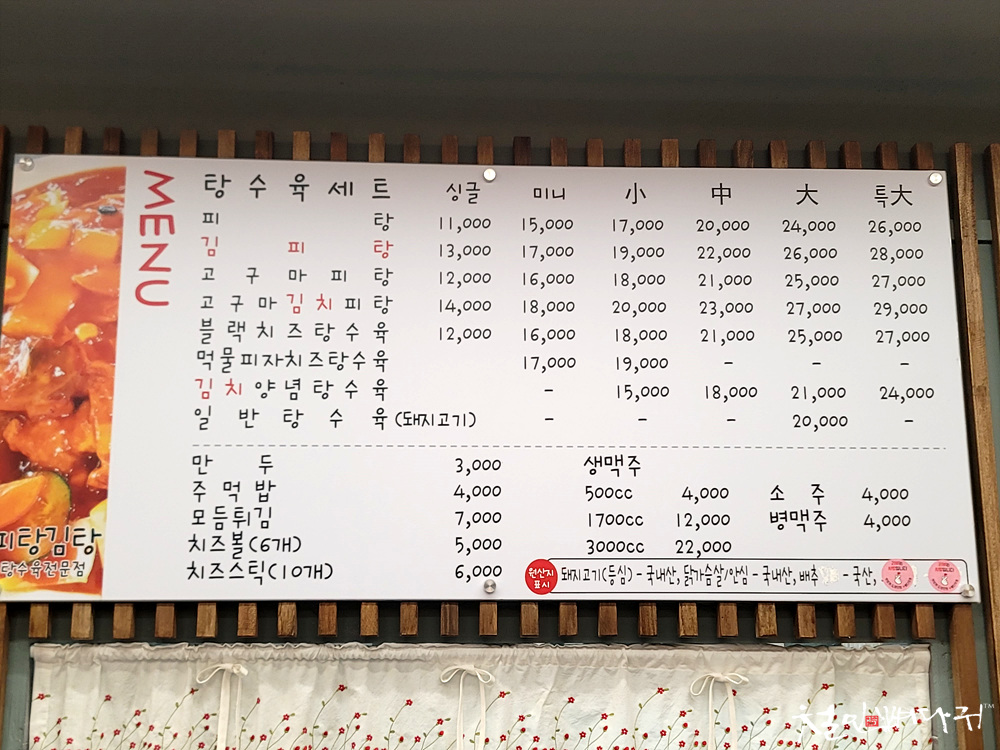 MENU
탕수육세트 싱글 미니 小 中 大 특大
피탕 11,000 15,000 17,000 20,000 24,000 26,000
김피탕 13,000 17,000 19,000 22,000 26,000 28,000
고구마피탕 12,000 16,000 18,000 21,000 25,000 27,000
고구마김치피탕 14,000 18,000 20,000 23,000 27,000 29,000
블랙치즈탕수육 12,000 16,000 18,000 21,000 25,000 27,000
먹물피자치즈탕수육 17,000 19,000 - - -
김치양념탕수육 - 15,000 18,000 21,000 24,000
일반탕수육(돼지고기) - - - 20,000 -
만두 3,000
주먹밥 4,000
모듬튀김 7,000
치즈볼(6개) 5,000
치즈스틱(10개) 6,000
생맥주
500cc 4,000
1700cc 12,000
3000cc 22,000
소주 4,000
병맥주 4,000
피탕김탕
탕수육전문점
원산지
표시
돼지고기(등심) - 국내산, 닭가슴살/안심 - 국내산, 배추 - 국산,